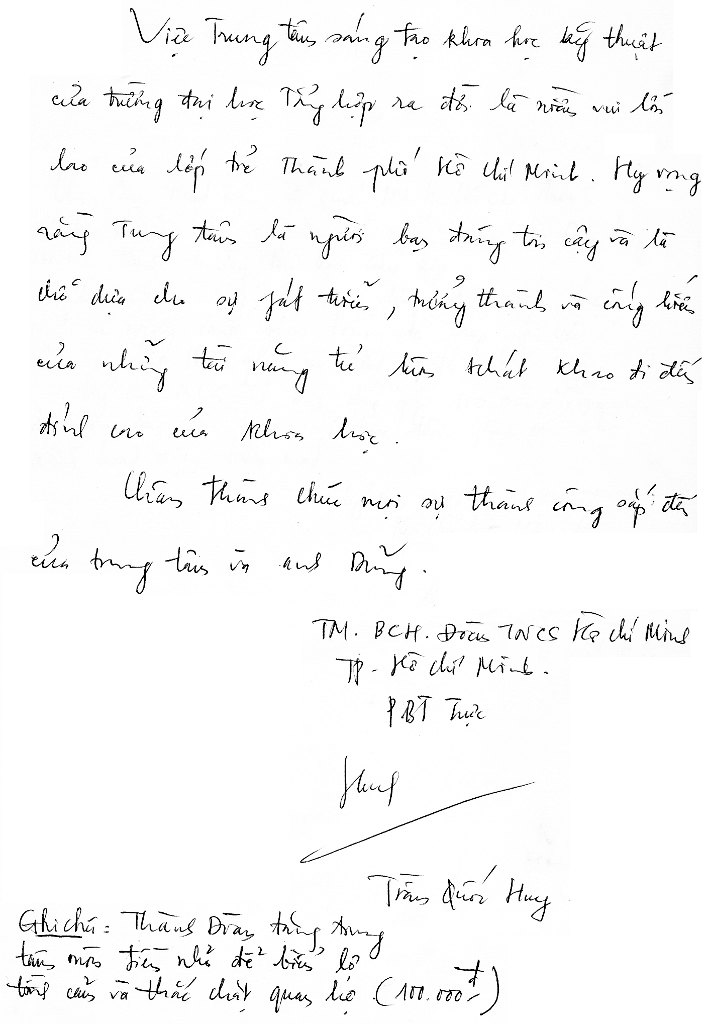 Việc Trung tâm sáng tạo khoa học kỹ thuật
của trường đại học Tổng hợp ra đời là niềm vui lớn
lao của lớp trẻ Thành phố Hồ Chí Minh. Hy vọng
rằng Trung tâm là người bạn đáng tin cậy và là
chỗ dựa cho sự phát triển, trưởng thành và cống hiến
của những tài năng trẻ luôn khát khao đi đến
đỉnh cao của khoa học.
Chân thành chúc mọi sự thành công sắp đến
của trung tâm và anh Dũng.
TM. BCH. Đoàn TNCS Hồ Chí Minh
TP. Hồ Chí Minh.
PBT Trực
Trần Quốc Huy
Ghi chú: Thành Đoàn tặng trung
tâm món tiền nhỏ để biểu lộ
tình cảm và thắt chặt quan hệ. (100.000đ)